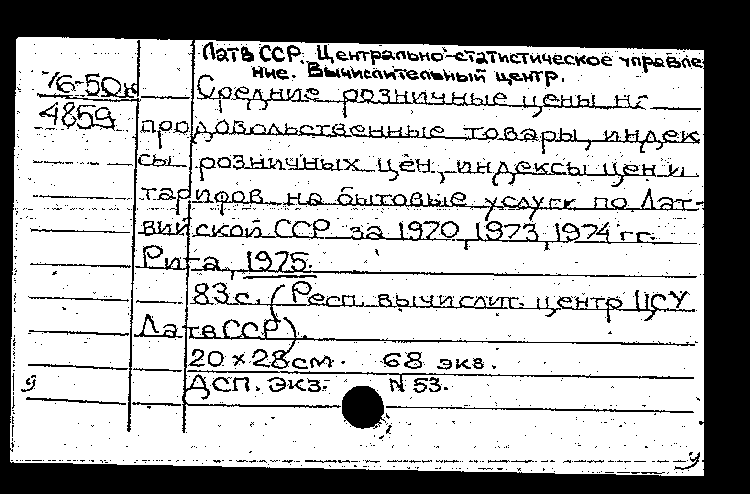 Латв ССР. Центрально-статистическое управле-
ние. Вычислительный центр.
76-50к
4859
Средние розничные цены на
продовольственные товары, индек
сы розничных цен, индексы цен и
тарифов на бытовые услуги по Лат-
вийской ССР за 1970, 1973, 1974 гг.
Рига, 1975.
83 с. (Респ. вычислит. центр ЦСУ
Латв ССР).
20 × 28 см. 68 экз.
ДСП. экз. N 53.